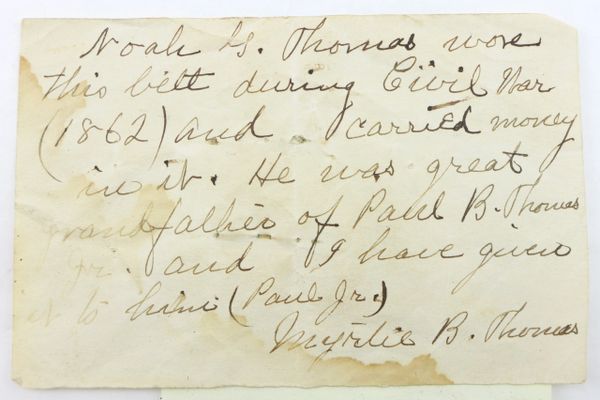 Noah G. Thomas wore
this belt during Civil War
(1862) and carried money
in it. He was great
grandfather of Paul B. Thomas
Jr. and I have given
it to him (Paul Jr.)
Myrtie B. Thomas